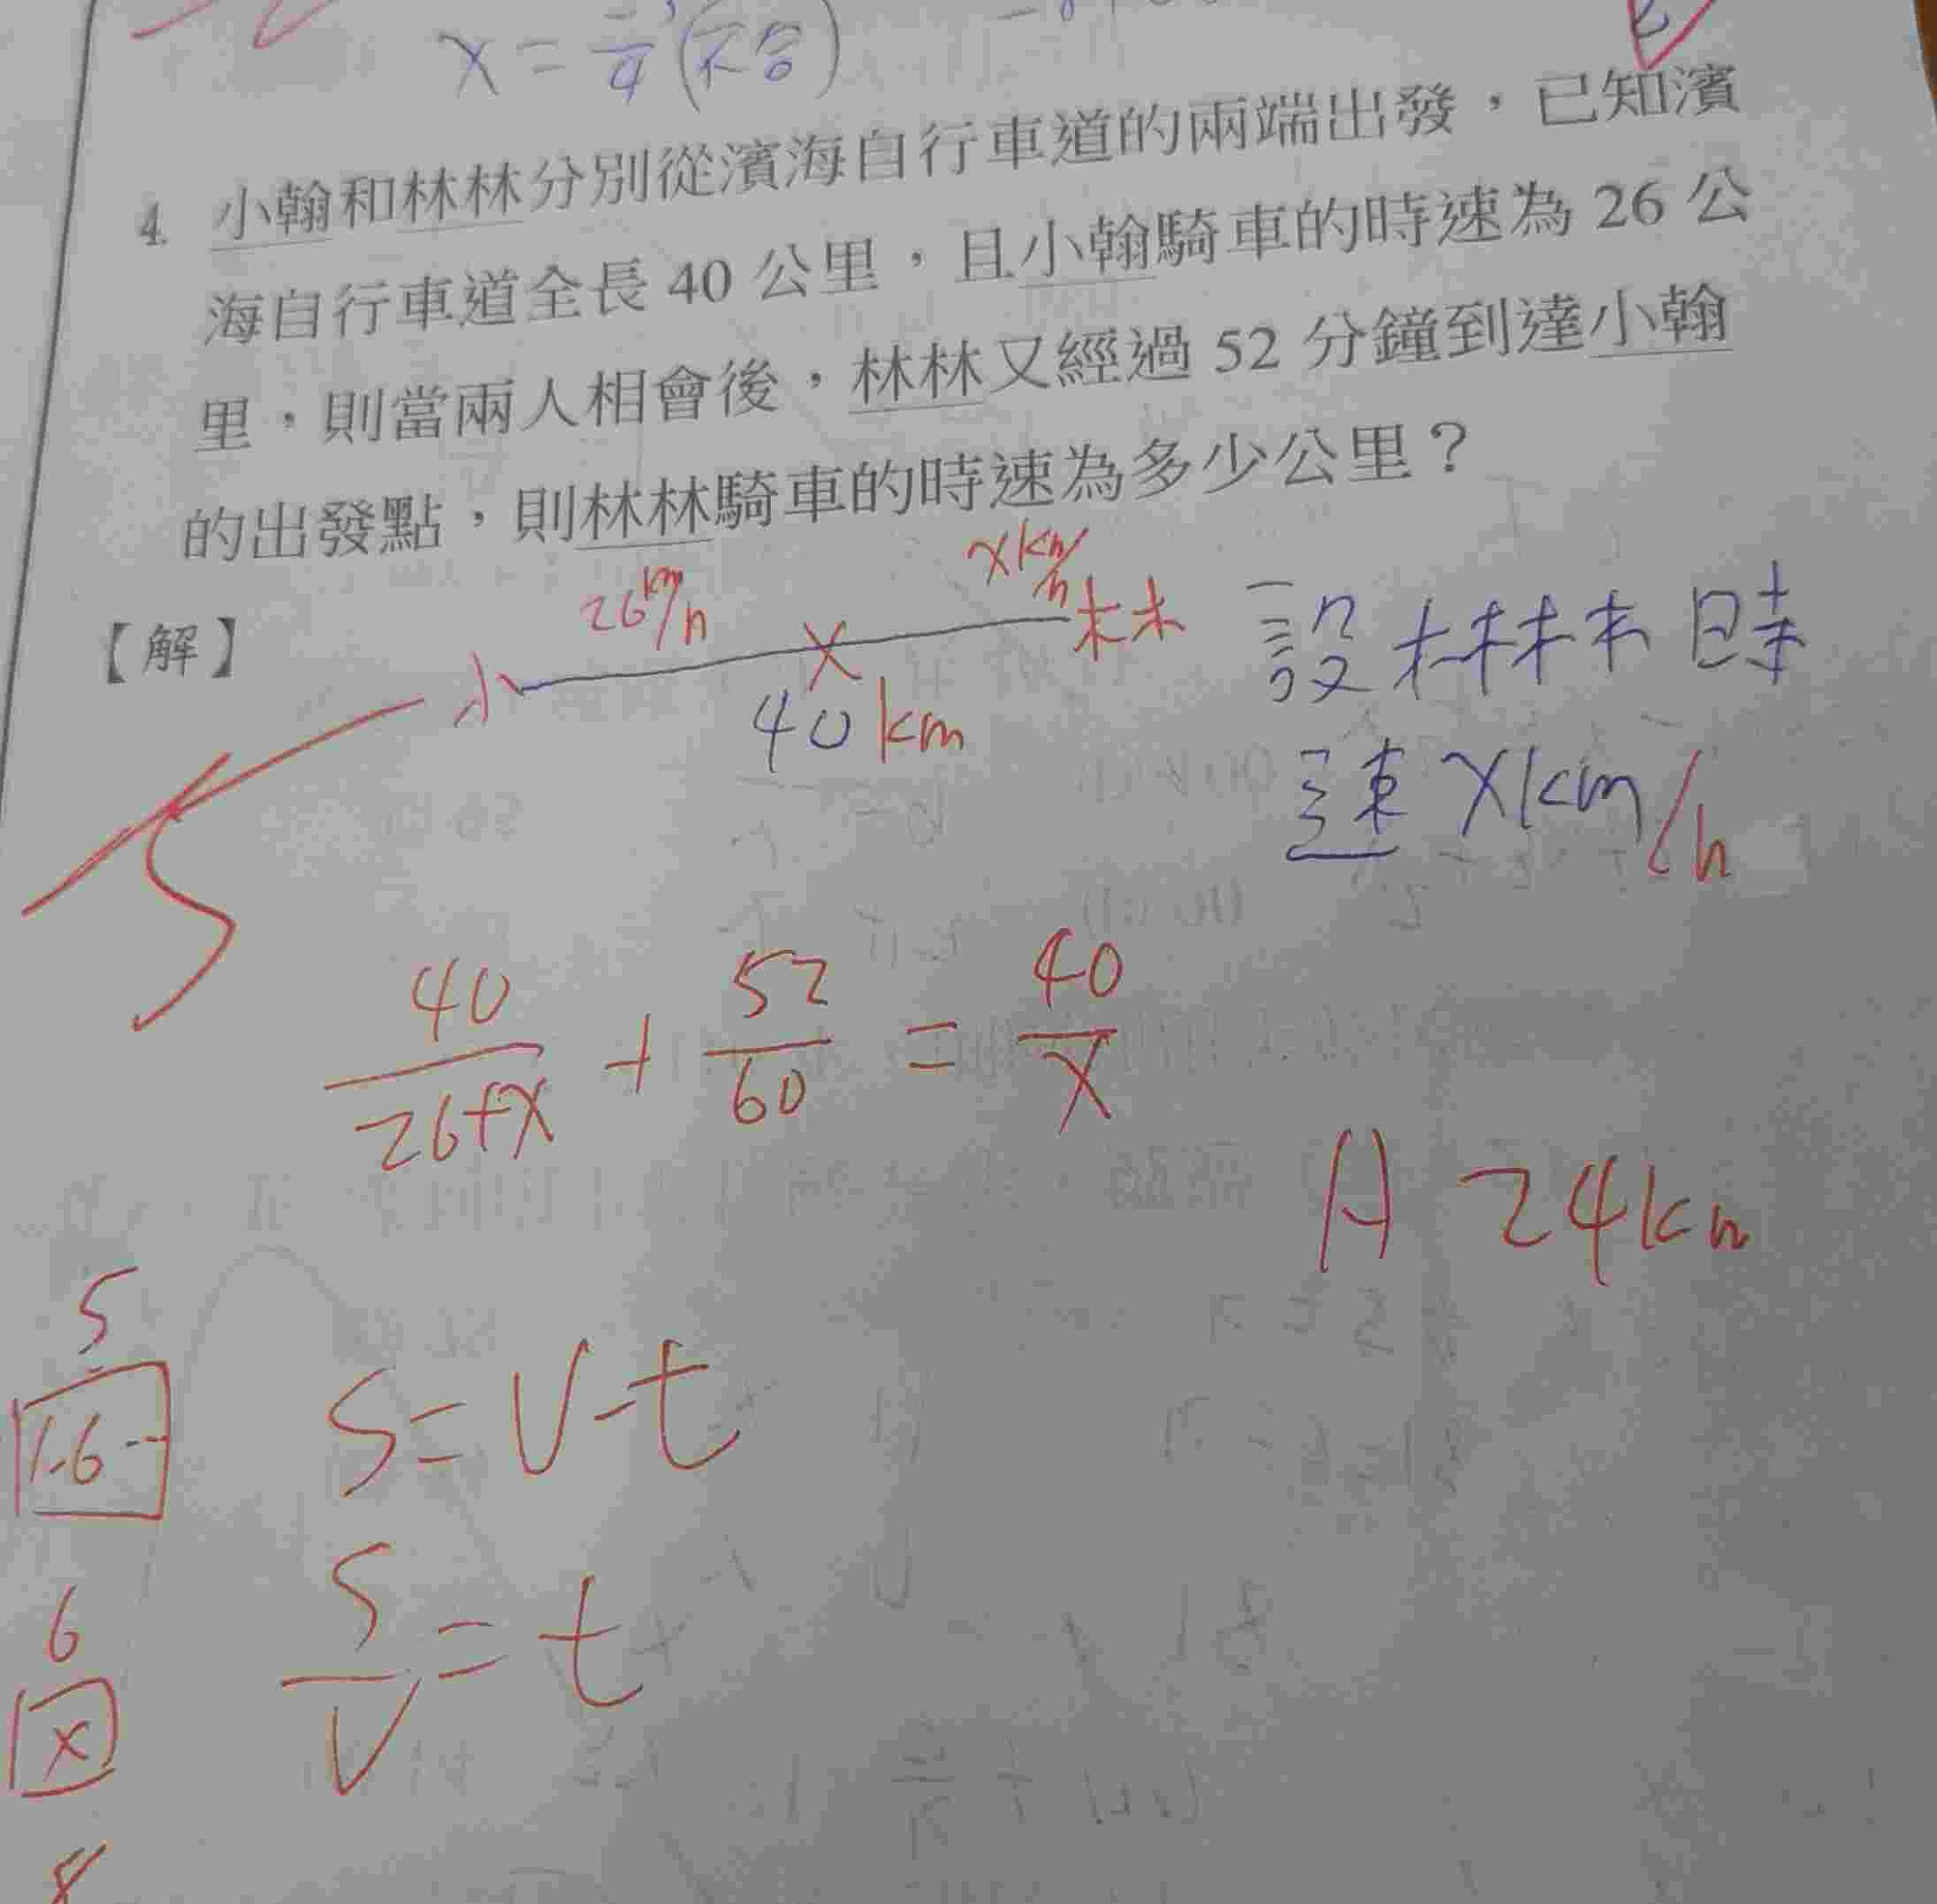 x = (不合)
4. 小翰和林林分別從濱海自行車道的兩端出發，已知濱
海自行車道全長 40 公里，且小翰騎車的時速為 26 公
里，則當兩人相會後，林林又經過 52 分鐘到達小翰
的出發點，則林林騎車的時速為多少公里？
【解】
26km/h xkm/h
小 林
40km
設林林時
速 xkm/h
40/26+x + 52/60 = 40/x
A 24km
5
1-6
S=V-t
S/V=t
6
x
8